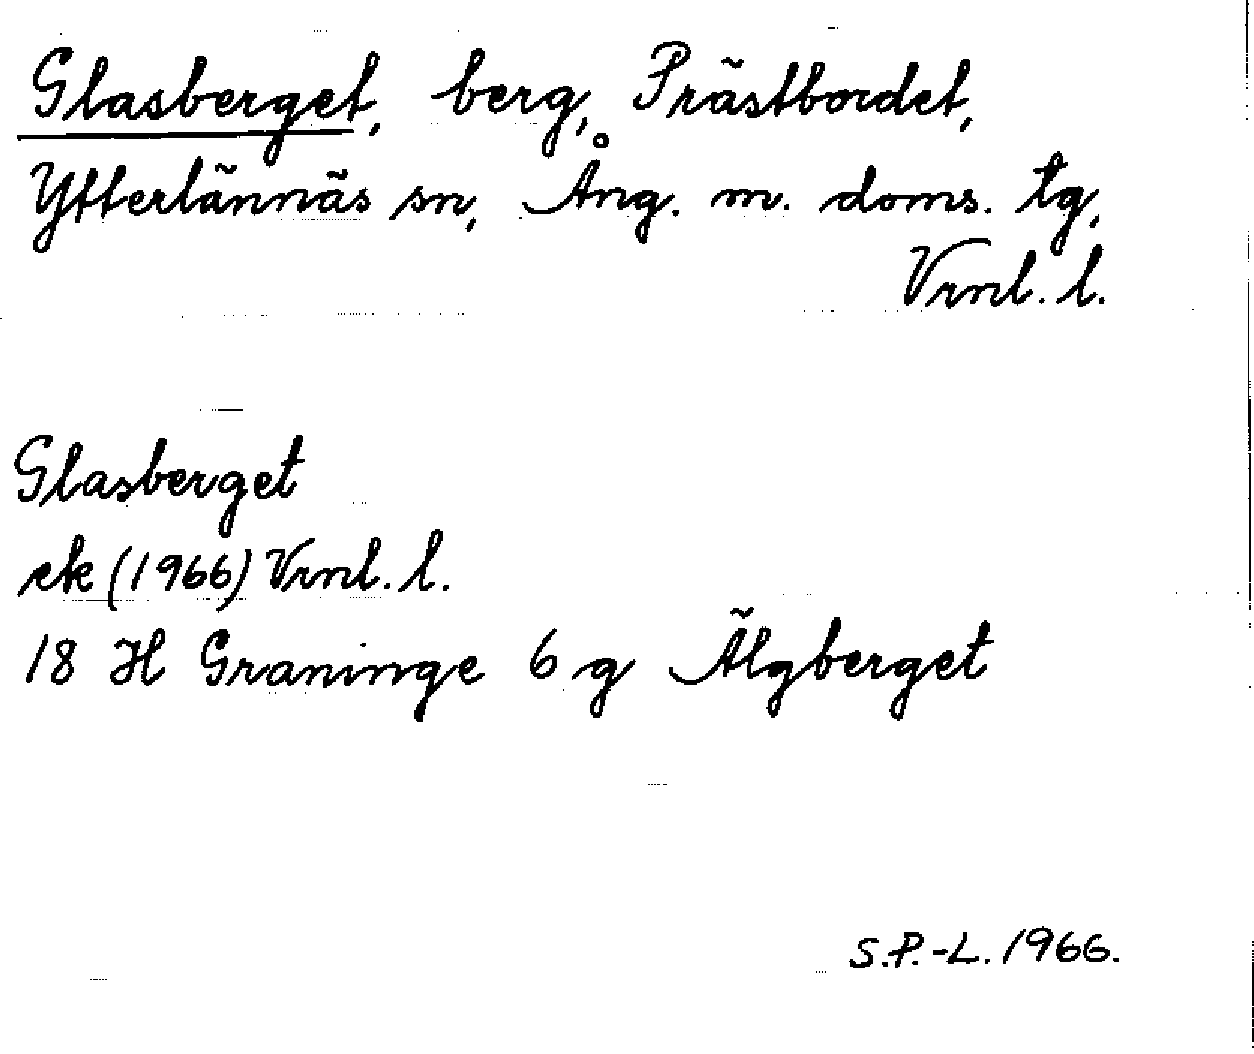 Glasberget, berg, Prästbordet,
Ytterlännäs sn, Ång. m. doms. tg,
Vrml. l.
Glasberget
ek (1966) Vrml. l.
18 H Graninge 6 g Älgberget
S.P.-L. 1966.